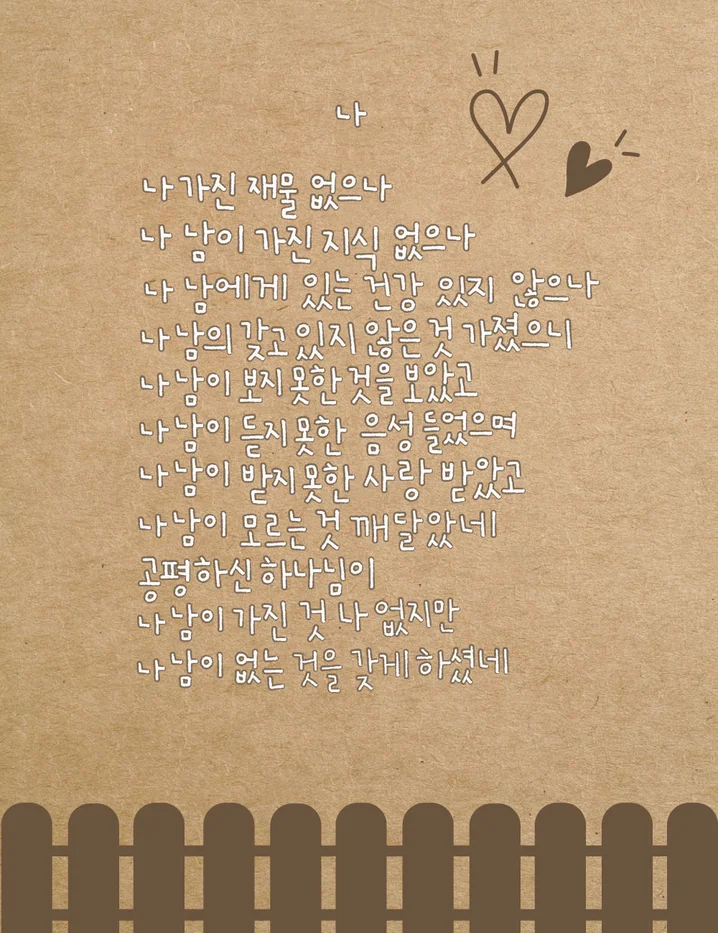 나
나 가진 재물 없으나
나 남이 가진 지식 없으나
나 남에게 있는 건강 있지 않으나
나 남의 갖고 있지 않은 것 가졌으니
나 남이 보지 못한 것을 보았고
나 남이 듣지 못한 음성 들었으며
나 남이 받지 못한 사랑 받았고
나 남이 모르는 것 깨달았네
공평하신 하나님이
나 남이 가진 것 나 없지만
나 남이 없는 것을 갖게 하셨네